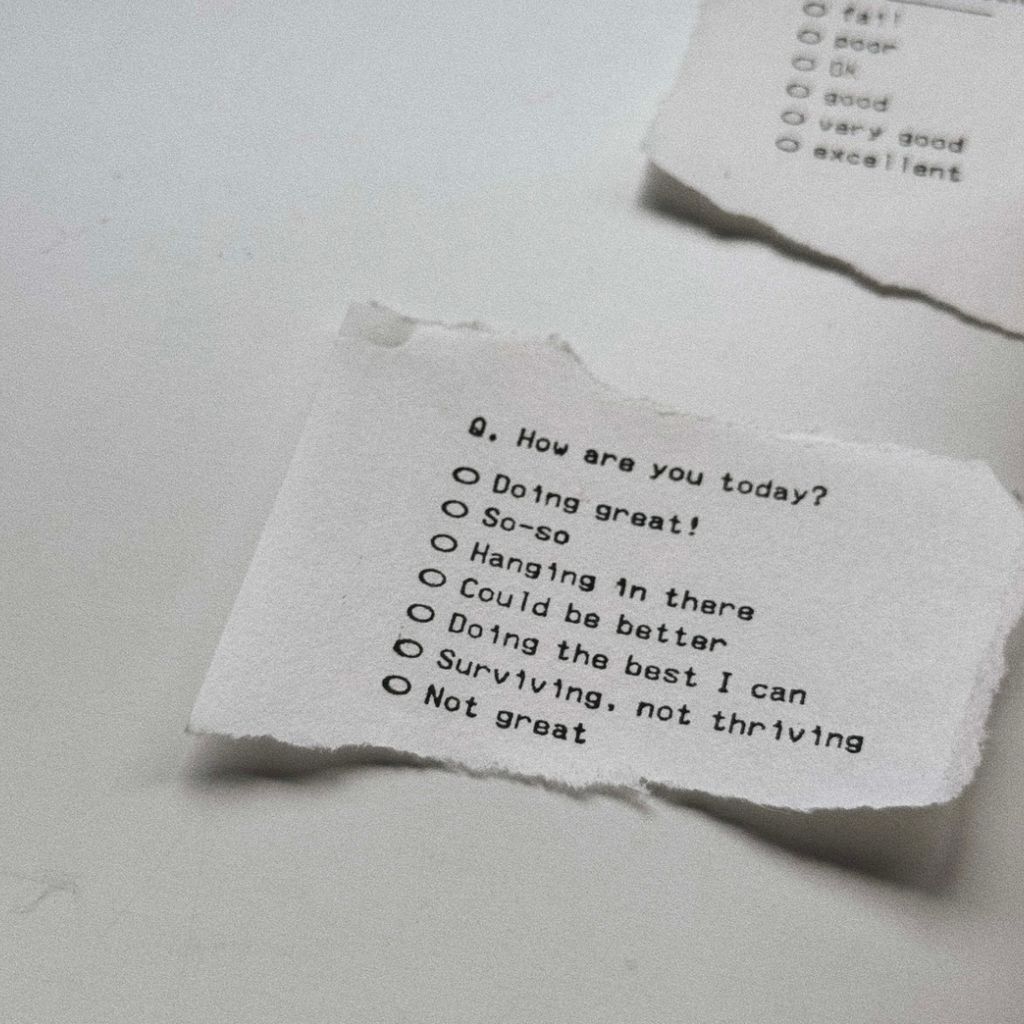 fail
poor
OK
good
very good
excellent
Q. How are you today?
Doing great!
So-so
Hanging in there
Could be better
Doing the best I can
Surviving, not thriving
Not great